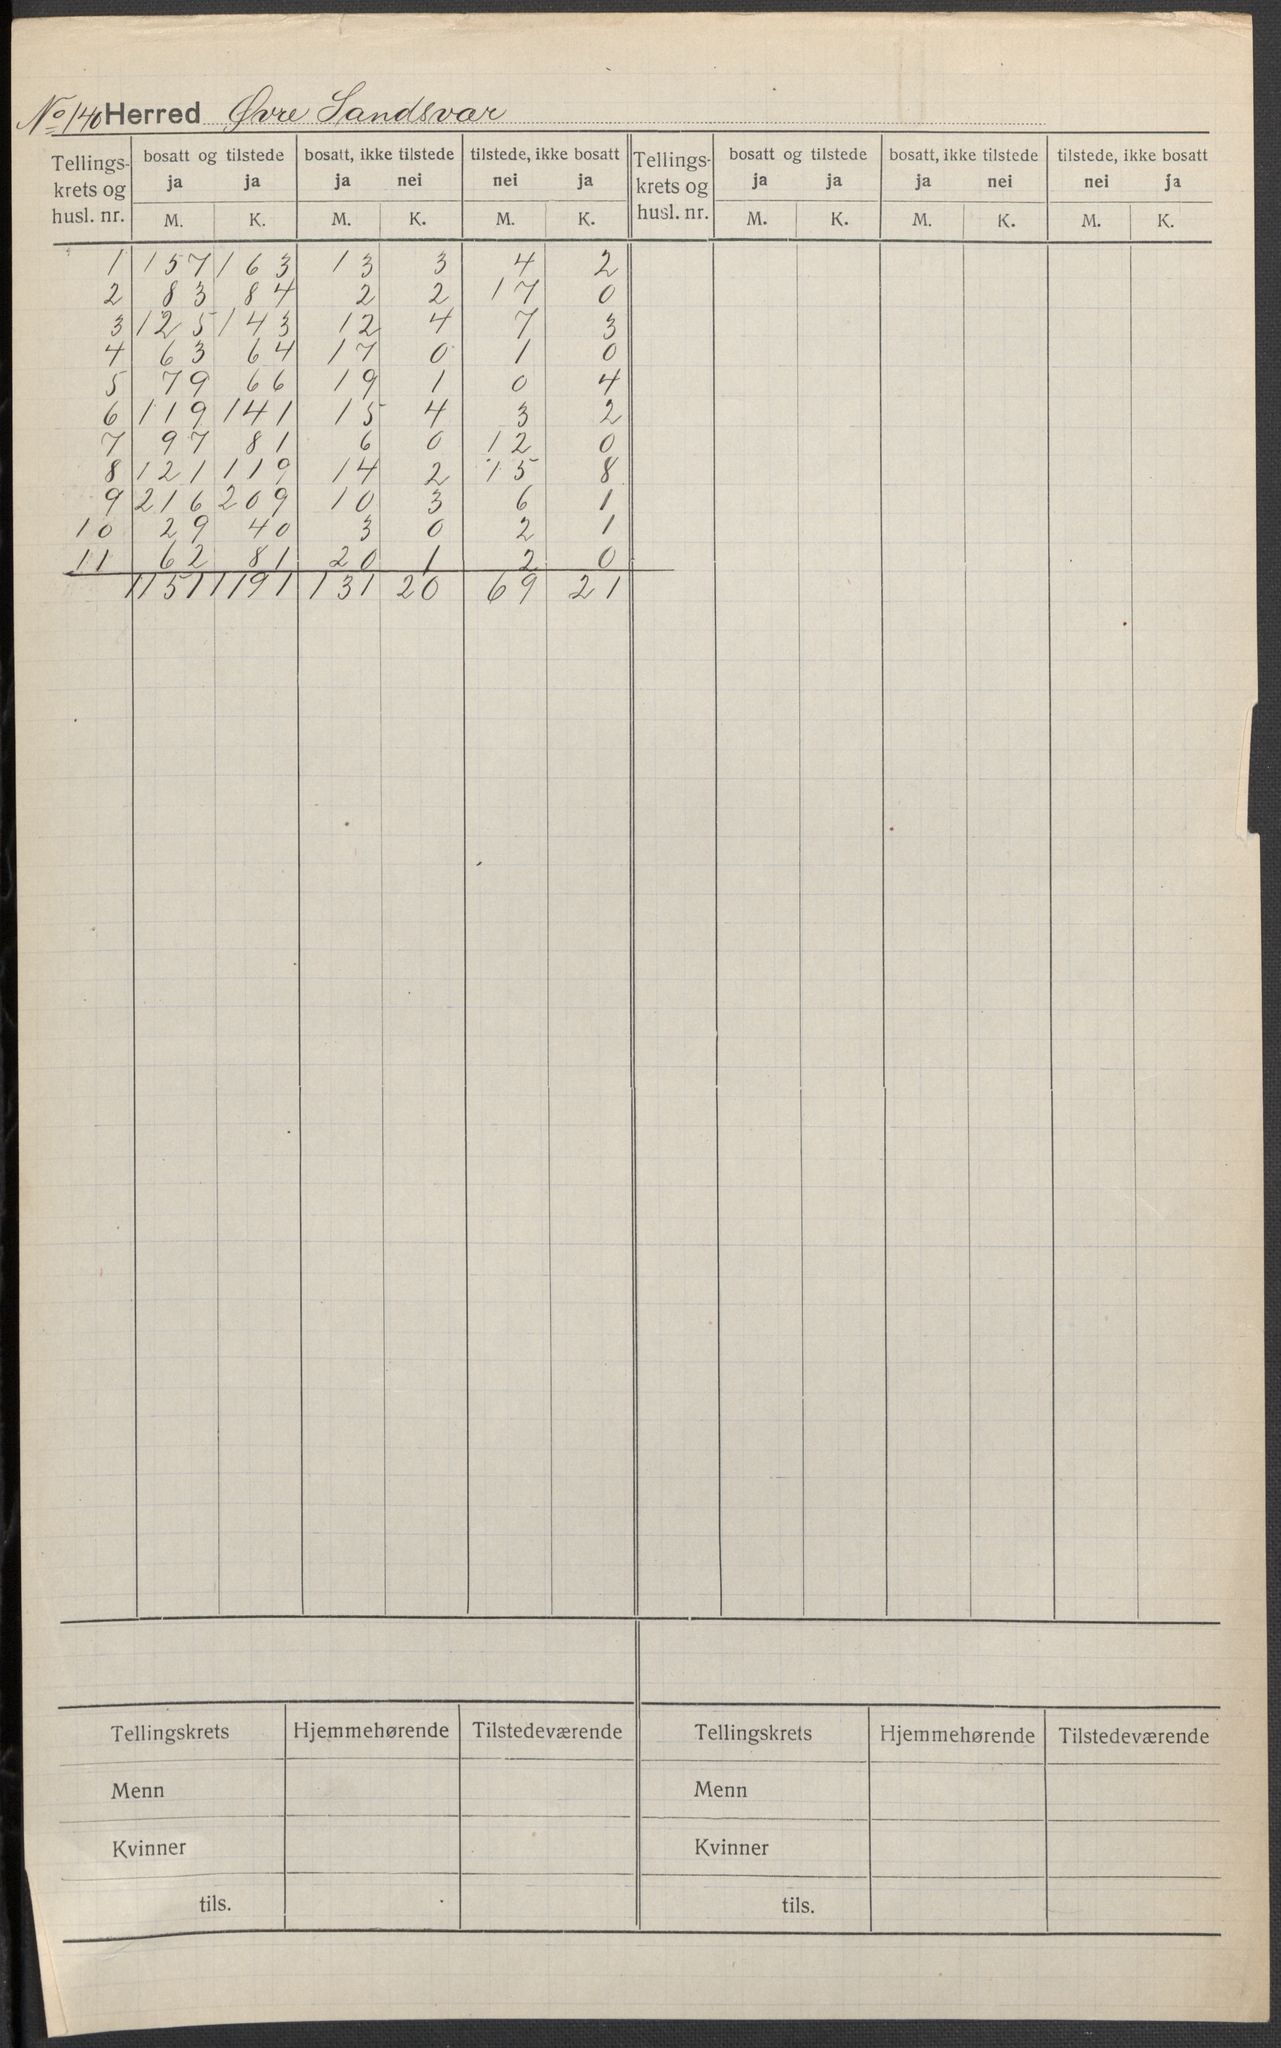 No 140 Herred Øvre Sandsvær
Tellings- krets og husl. nr. bosatt og tilstede bosatt, ikke tilstede tilstede, ikke bosatt Tellings- krets og husl. nr. bosatt og tilstede bosatt, ikke tilstede tilstede, ikke bosatt
ja ja ja nei nei ja ja ja ja nei nei ja
M. K. M. K. M. K. M. K. M. K. M. K.
1 157 163 13 3 4 2
2 83 84 2 2 17 0
3 125 143 12 4 7 3
4 63 64 17 0 1 0
5 79 66 19 1 0 4
6 119 141 15 4 3 2
7 97 81 6 0 12 0
8 121 119 14 2 15 8
9 216 209 10 3 6 1
10 29 40 3 0 2 1
11 62 81 20 1 2 0
1151 1191 131 20 69 21
Tellingskrets Hjemmehørende Tilstedeværende Tellingskrets Hjemmehørende Tilstedeværende
Menn Menn
Kvinner Kvinner
tils. tils.